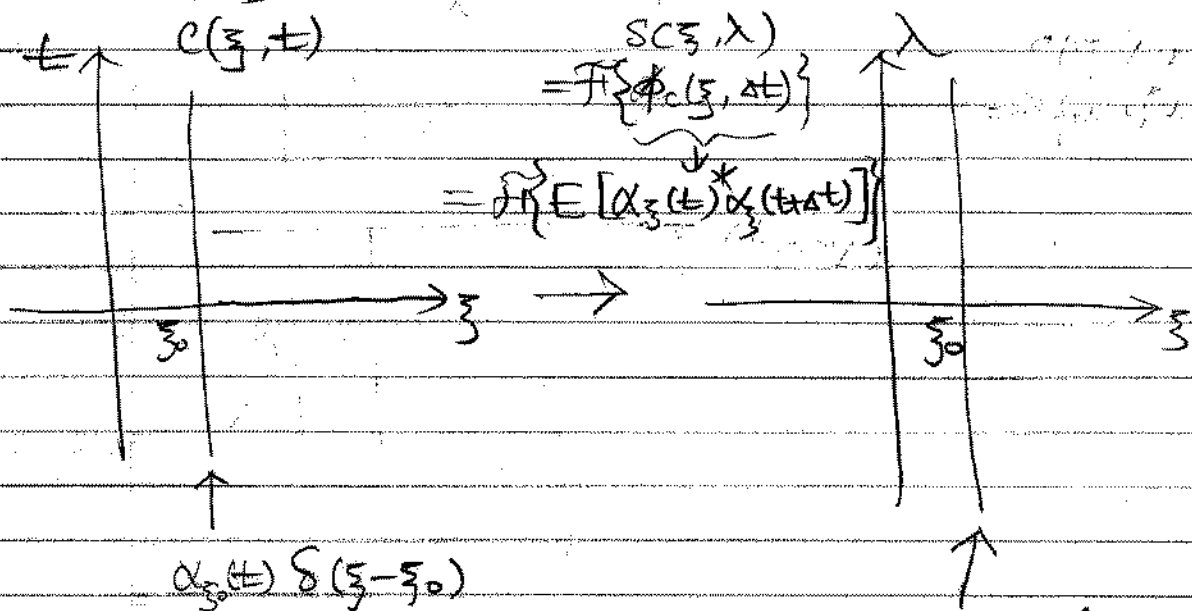 t C(ξ,t)
S(ξ,λ) λ
=F{ϕc(ξ,Δt)}
=F{E[αξ(t)*αξ(t+Δt)]}
ξ0 ξ → ξ0 ξ
αξ0(t) δ(ξ-ξ0)